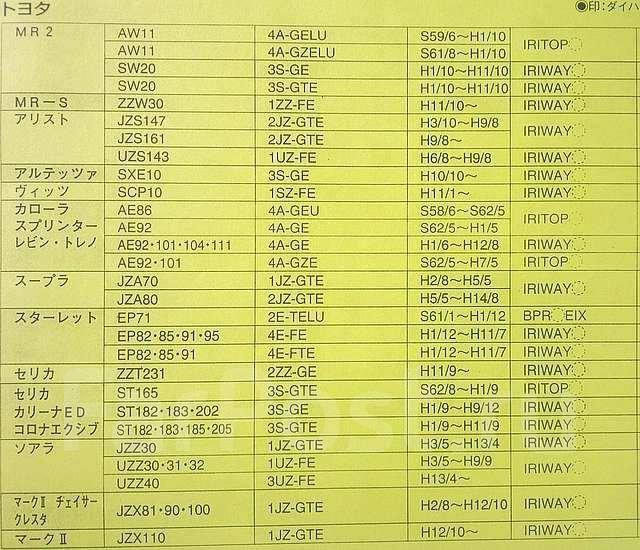 トヨタ ●印：ダイハ
MR2 AW11 4A-GELU S59/6～H1/10 IRITOP
AW11 4A-GZELU S61/8～H1/10
SW20 3S-GE H1/10～H11/10 IRIWAY
SW20 3S-GTE H1/10～H11/10 IRIWAY
MR－S ZZW30 1ZZ-FE H11/10～ IRIWAY
アリスト JZS147 2JZ-GTE H3/10～H9/8 IRIWAY
JZS161 2JZ-GTE H9/8～
UZS143 1UZ-FE H6/8～H9/8 IRIWAY
アルテッツァ SXE10 3S-GE H10/10～ IRIWAY
ヴィッツ SCP10 1SZ-FE H11/1～ IRIWAY
カローラ AE86 4A-GEU S58/6～S62/5 IRITOP
スプリンター AE92 4A-GE S62/5～H1/5
レビン・トレノ AE92・101・104・111 4A-GE H1/6～H12/8 IRIWAY
AE92・101 4A-GZE S62/5～H7/5 IRITOP
スープラ JZA70 1JZ-GTE H2/8～H5/5 IRIWAY
JZA80 2JZ-GTE H5/5～H14/8
スターレット EP71 2E-TELU S61/1～H1/12 BPR EIX
EP82・85・91・95 4E-FE H1/12～H11/7 IRIWAY
EP82・85・91 4E-FTE H1/12～H11/7 IRIWAY
セリカ ZZT231 2ZZ-GE H11/9～ IRIWAY
セリカ ST165 3S-GTE S62/8～H1/9 IRITOP
カリーナED ST182・183・202 3S-GE H1/9～H9/12 IRIWAY
コロナエクシブ ST182・183・185・205 3S-GTE H1/9～H11/9 IRIWAY
ソアラ JZZ30 1JZ-GTE H3/5～H13/4 IRIWAY
UZZ30・31・32 1UZ-FE H3/5～H9/9 IRIWAY
UZZ40 3UZ-FE H13/4～
マークⅡ チェイサー
クレスタ JZX81・90・100 1JZ-GTE H2/8～H12/10 IRIWAY
マークⅡ JZX110 1JZ-GTE H12/10～ IRIWAY